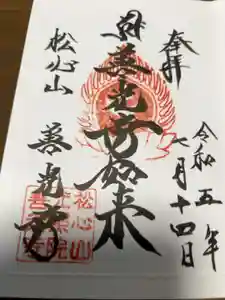 奉拝
令和五年
七月十四日
善光寺如来
松心山
善光寺
松心山
善光寺